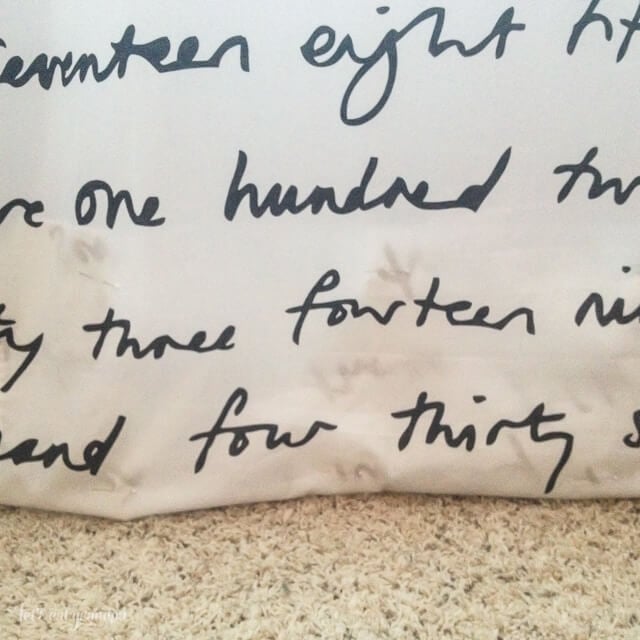 seventeen eight
one hundred
three fourteen
and four thirty